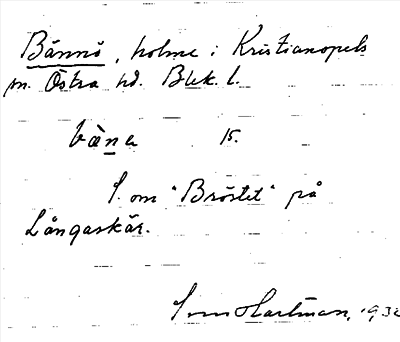 Bännö, holme i Kristianopels
m. Östra hd. Blek. l.
bæna 15.
S. om "Bröstet" på
Långaskär.
Sven Hartman, 1932